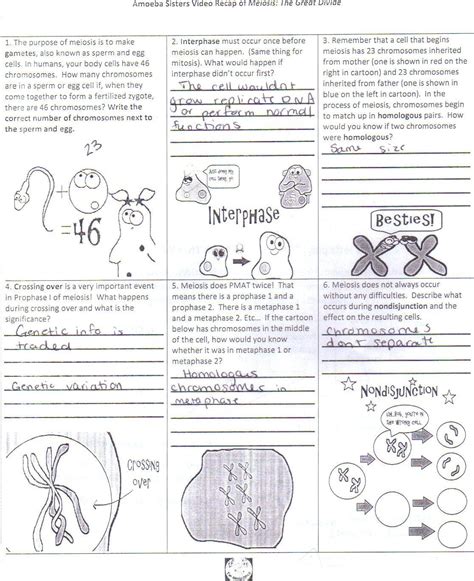 Amoeba Sisters Video Recap of Meiosis: The Great Divide
1. The purpose of meiosis is to make
gametes, also known as sperm and egg
cells. In humans, your body cells have 46
chromosomes. How many chromosomes
are in a sperm or egg cell if, when they
come together to form a fertilized zygote,
there are 46 chromosomes? Write the
correct number of chromosomes next to
the sperm and egg.
23
+
=46
2. Interphase must occur once before
meiosis can happen. (Same thing for
mitosis). What would happen if
interphase didn't occur first?
The cell wouldnt
grow replicate DNA
or perform normal
functions
INTERPHASE
3. Remember that a cell that begins
meiosis has 23 chromosomes inherited
from mother (one is shown in red on the
right in cartoon) and 23 chromosomes
inherited from father (one is shown in
blue on the left in cartoon). In the
process of meiosis, chromosomes begin
to match up in homologous pairs. How
would you know if two chromosomes
were homologous?
Same size
BESTIES!
4. Crossing over is a very important event
in Prophase I of meiosis! What happens
during crossing over and what is the
significance?
Genetic info is
traded
Genetic variation
CROSSING
OVER
5. Meiosis does PMAT twice! That
means there is a prophase 1 and a
prophase 2. There is a metaphase 1
and a metaphase 2. Etc... If the cartoon
below has chromosomes in the middle
of the cell, how would you know
whether it was in metaphase 1 or
metaphase 2?
Homologous
chromosomes in
metaphase
6. Meiosis does not always occur
without any difficulties. Describe what
occurs during nondisjunction and the
effect on the resulting cells.
chromosomes
dont separate
NONDISJUNCTION
UH, BOB, YOU'RE IN
THE WRONG CELL.